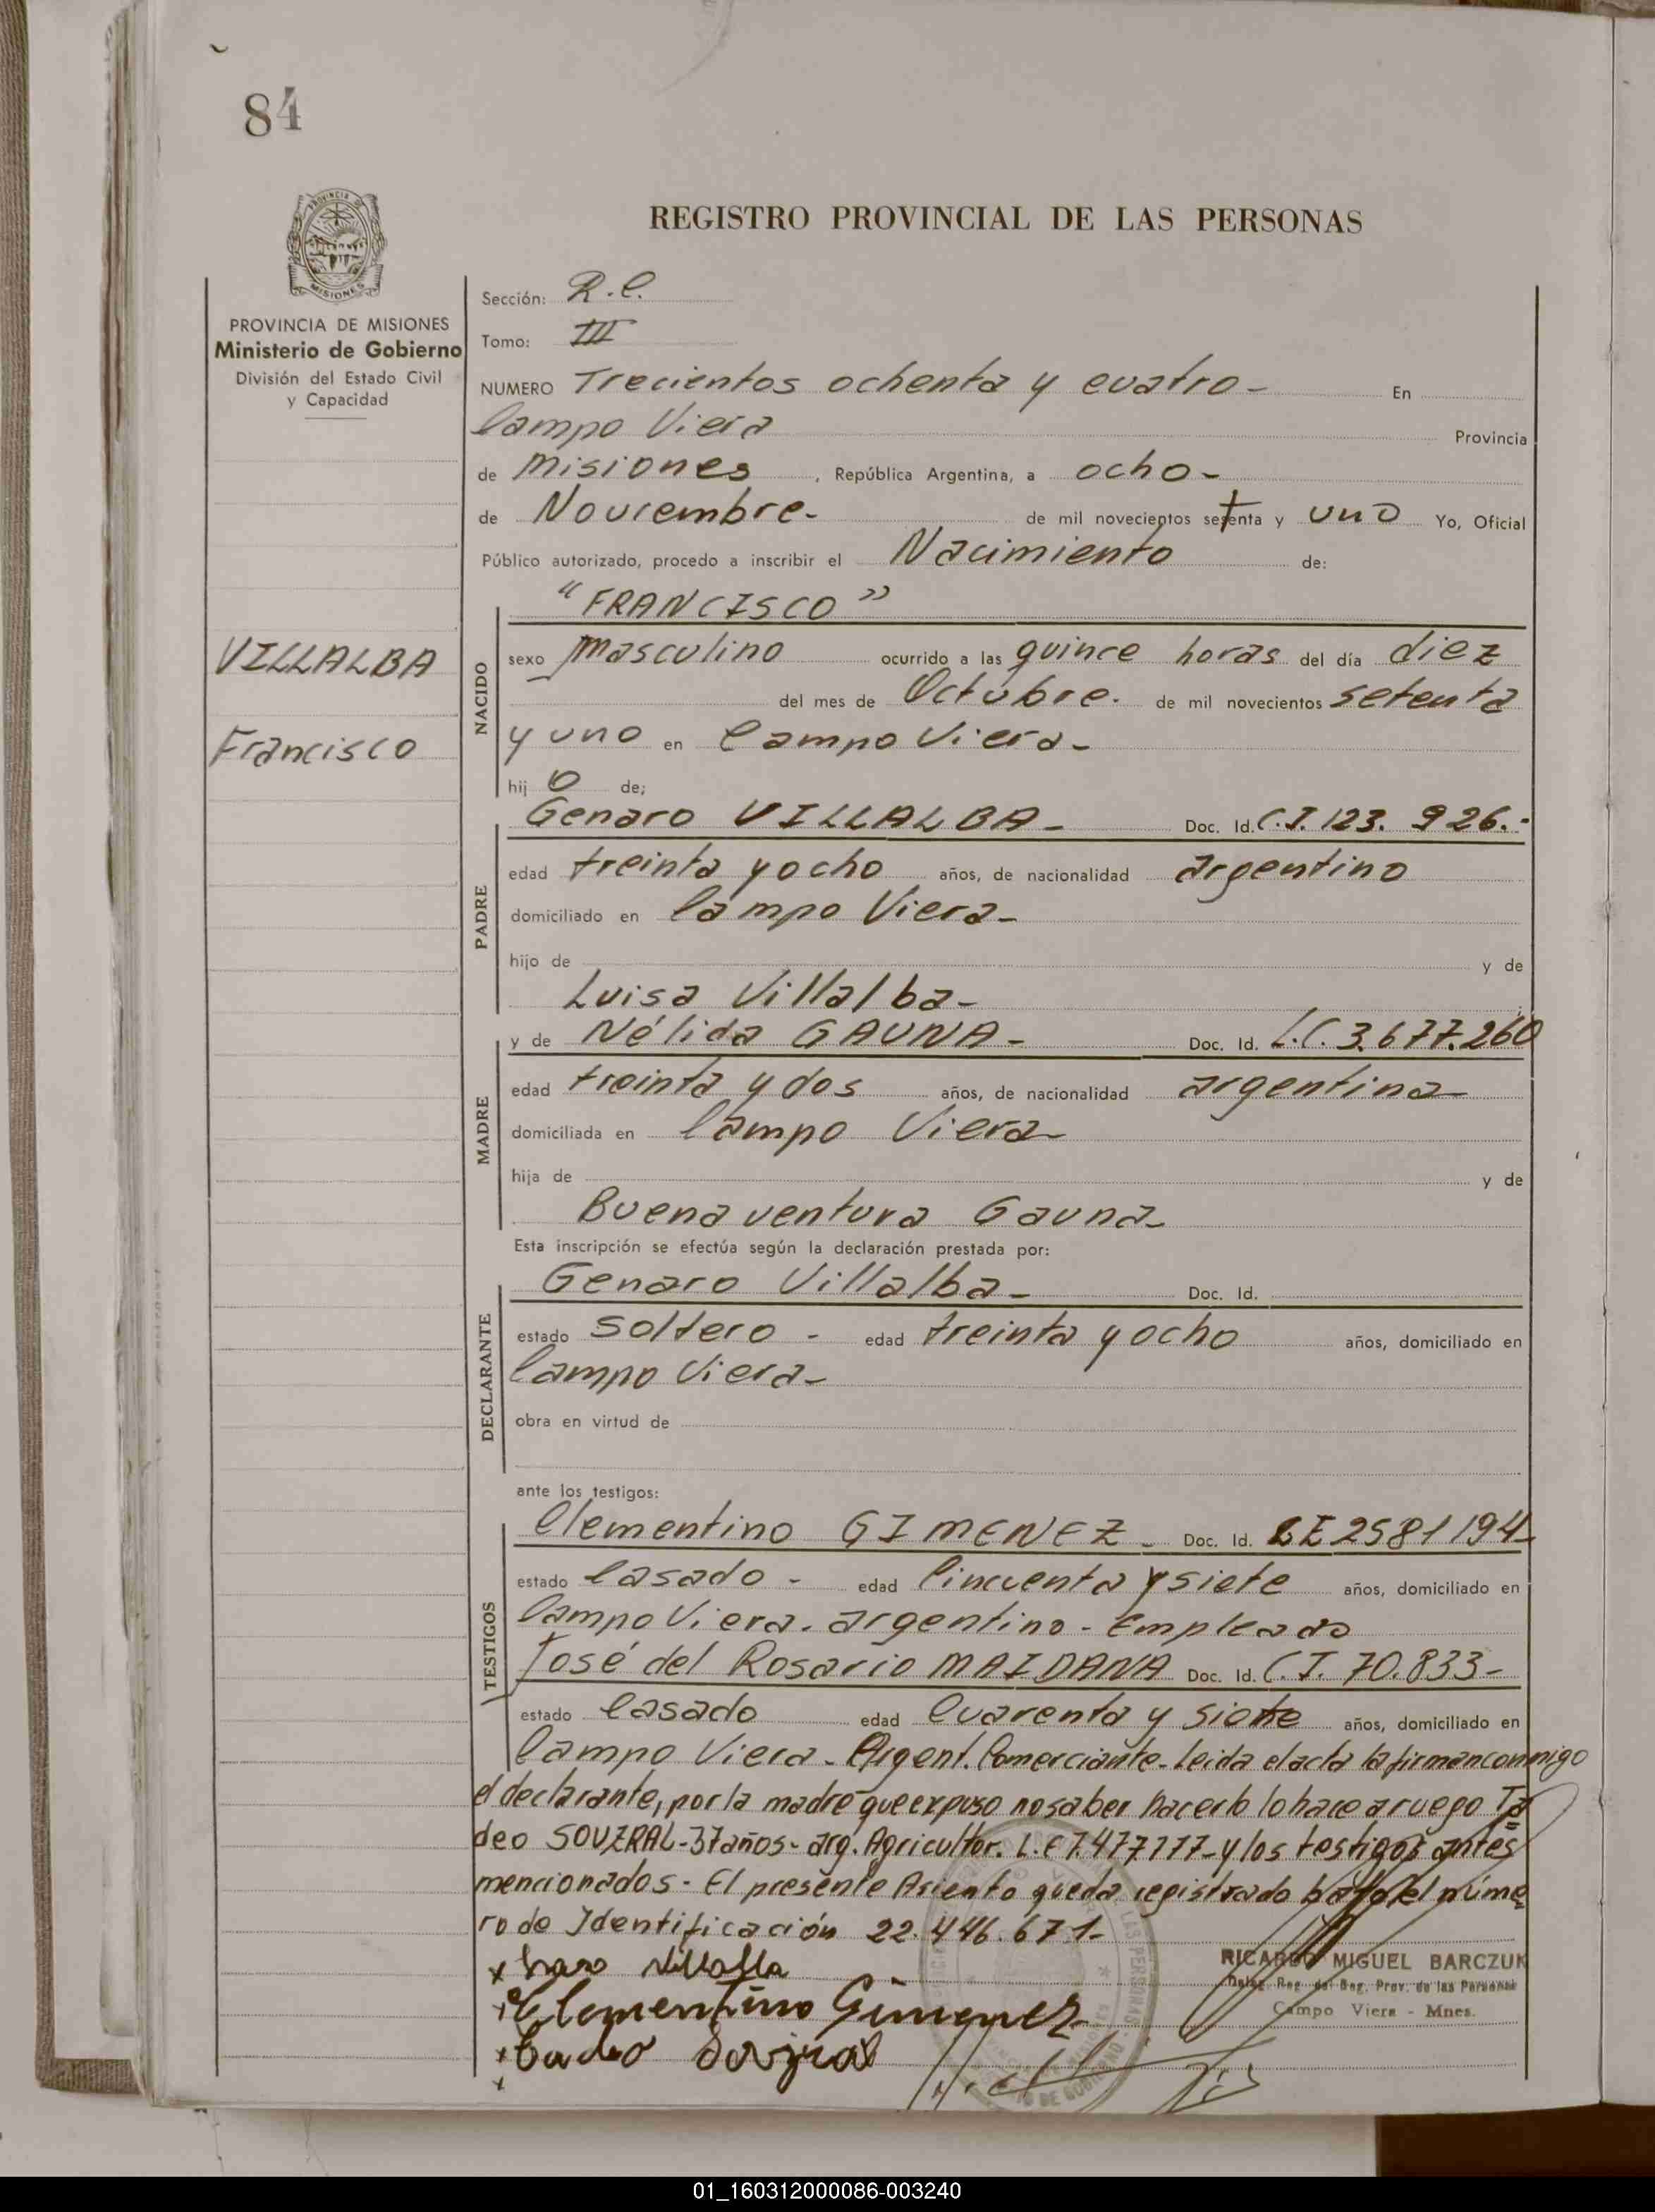 84
REGISTRO PROVINCIAL DE LAS PERSONAS
MISIONES
PROVINCIA DE MISIONES
Ministerio de Gobierno
División del Estado Civil
y Capacidad
Sección: R.C.
Tomo: III
NUMERO Trecientos ochenta y cuatro- En
Campo Viera Provincia
de Misiones, República Argentina, a ocho-
de Noviembre- de mil novecientos setenta y uno Yo, Oficial
Público autorizado, procedo a inscribir el Nacimiento de:
"FRANCISCO"
VILLALBA
Francisco
NACIDO
sexo masculino ocurrido a las quince horas del día diez
del mes de Octubre. de mil novecientos setenta
y uno en Campo Viera-
hijo de;
Genaro VILLALBA- Doc. Id. C.I. 123.926.-
PADRE
edad treinta y ocho años, de nacionalidad argentino
domiciliado en Campo Viera-
hijo de y de
Luisa Villalba-
y de Nélida GAUNA- Doc. Id. L.C. 3.677.260
MADRE
edad treinta y dos años, de nacionalidad argentina
domiciliada en Campo Viera
hija de y de
Buenaventura Gauna-
Esta inscripción se efectúa según la declaración prestada por:
Genaro Villalba- Doc. Id.
DECLARANTE
estado soltero - edad treinta y ocho años, domiciliado en
Campo Viera-
obra en virtud de
ante los testigos:
Clementino GIMENEZ- Doc. Id. LE 2581194-
TESTIGOS
estado Casado - edad Cincuenta y siete años, domiciliado en
Campo Viera. argentino - Empleado
José del Rosario MAIDANA Doc. Id. C.I. 70.833-
estado Casado edad Cuarenta y siete años, domiciliado en
Campo Viera- Argent. Comerciante- Leida el acta la firman conmigo
el declarante, por la madre que expuso no saber hacerlo lo hace a ruego Ta=
deo SOUZRAL-37 años- arg. Agricultor. L.E 7.477.177- y los testigos antes
mencionados- El presente Asiento queda registrado bajo el núme
ro de Identificación 22.446.671-
x Villalba
x Clementino Gimenez
x Tadeo
x
RICARDO MIGUEL BARCZUK
Deleg. Reg. del Reg. Prov. de las Personas
Campo Viera - Mnes.
01_160312000086-003240